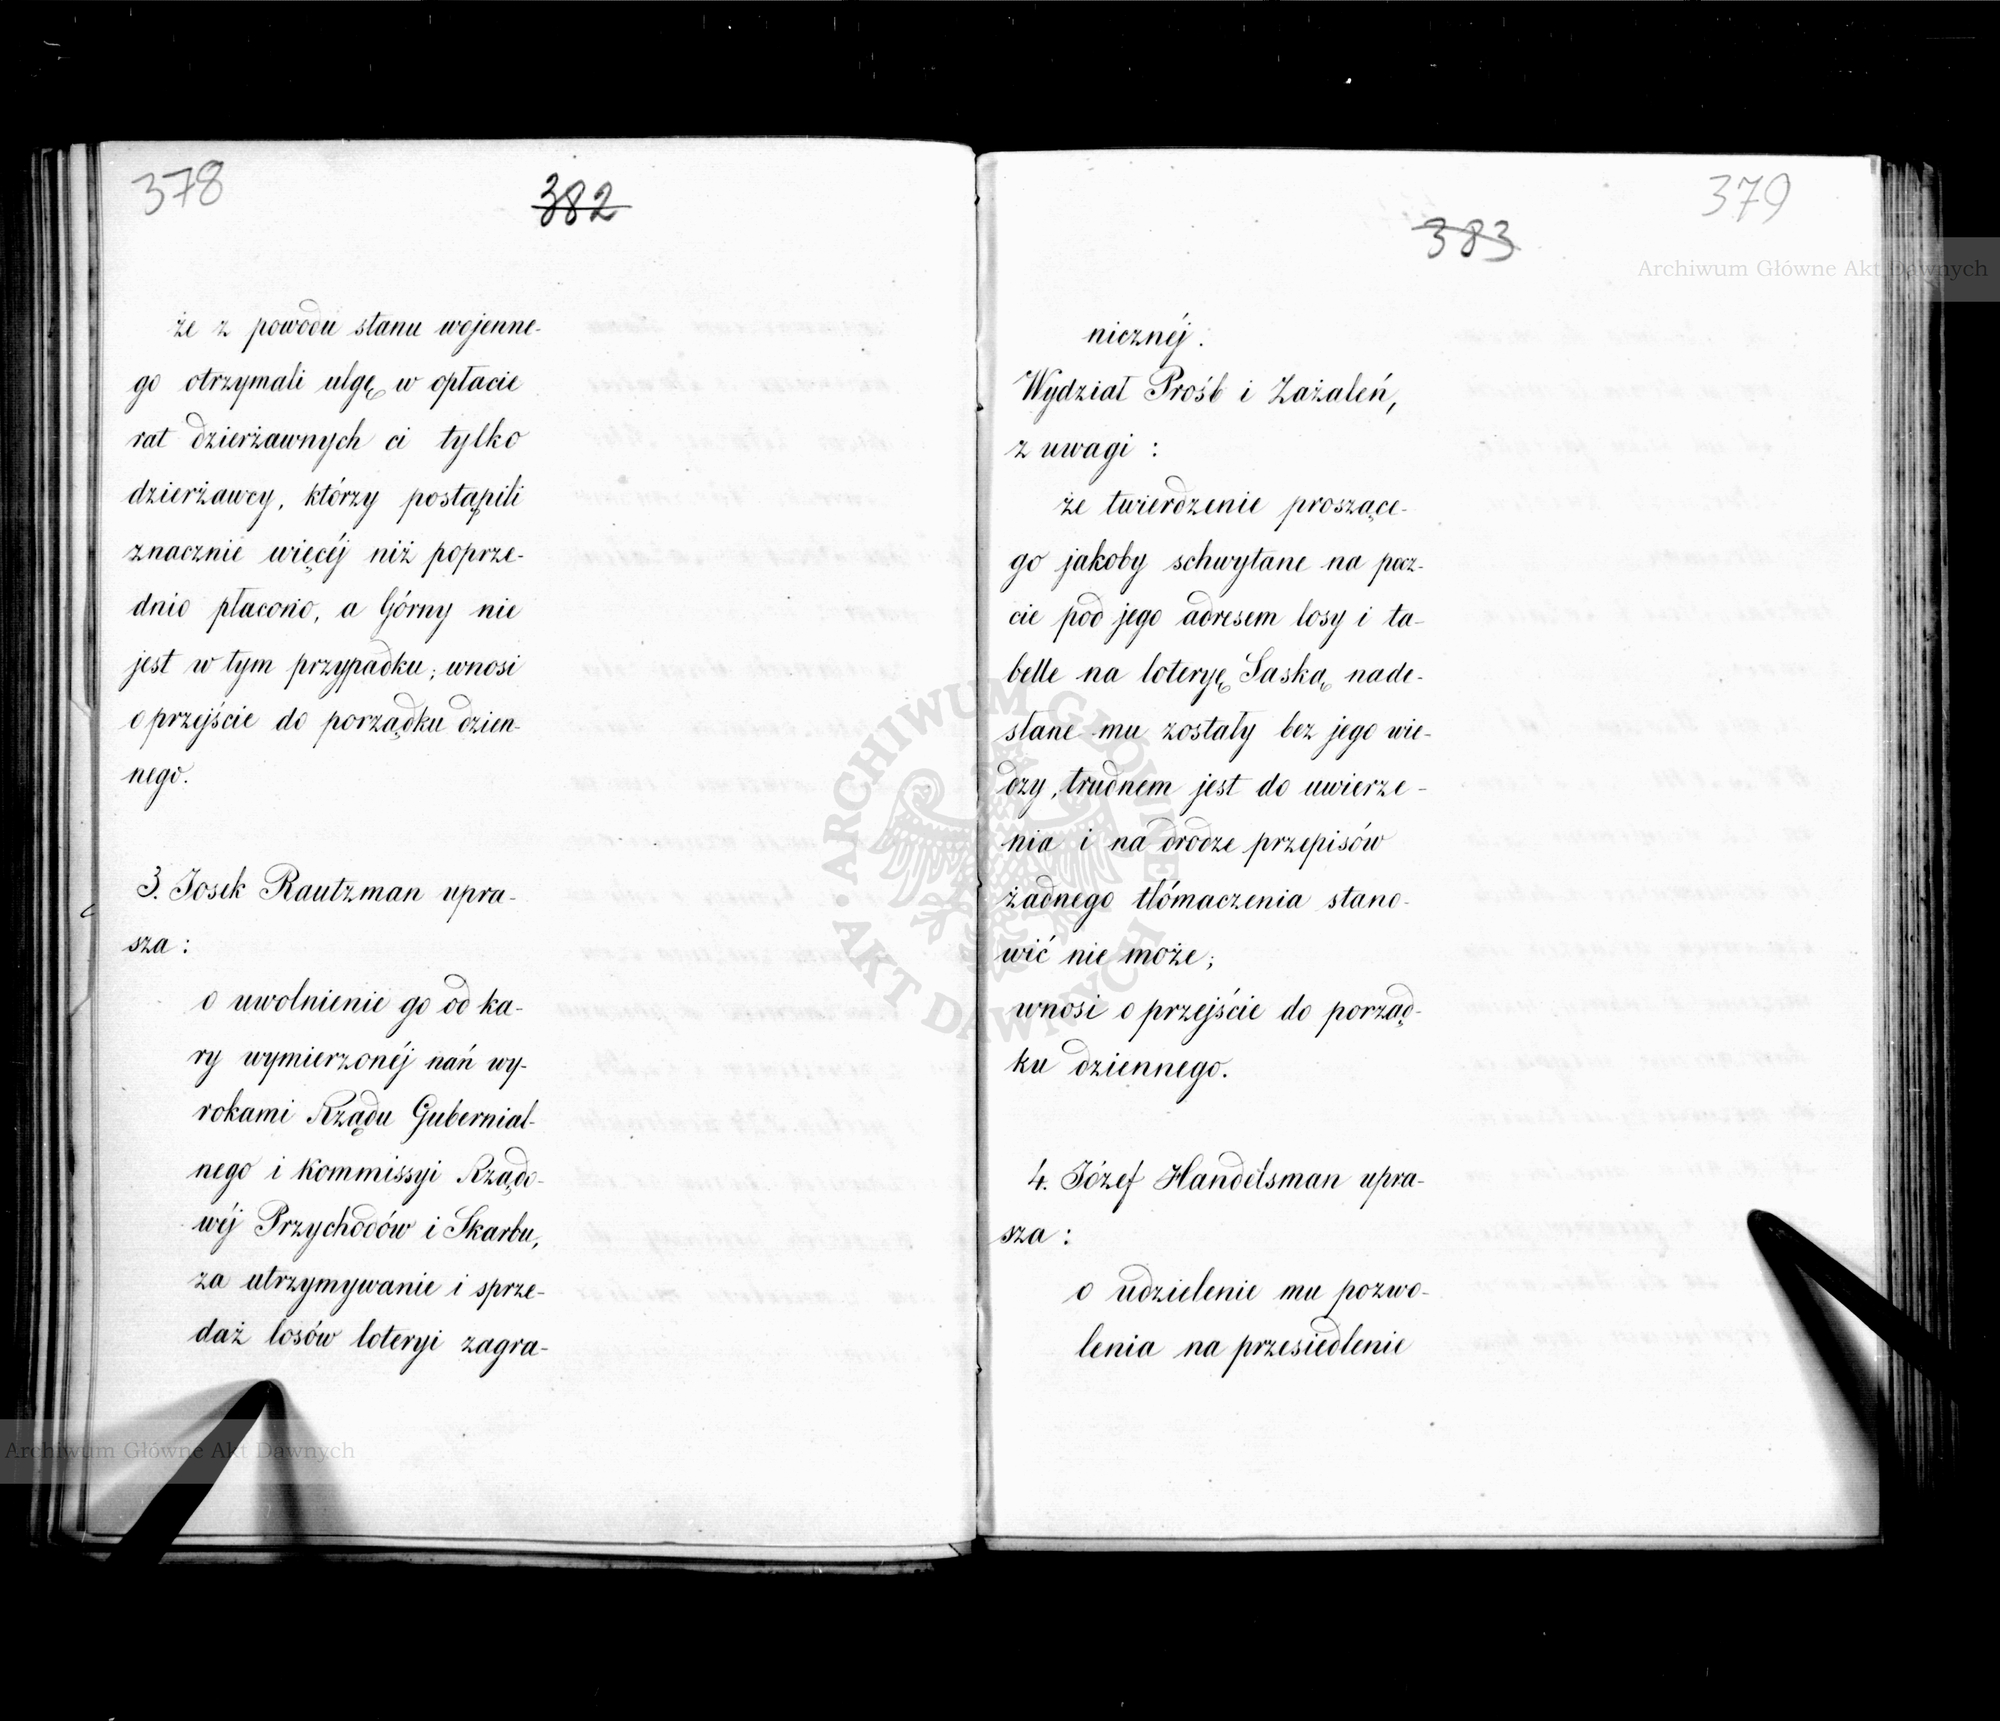 378
382
że z powodu stanu wojenne-
go otrzymali ulgę w opłacie
rat dzierżawnych ci tylko
dzierżawcy, którzy postąpili
znacznie więcéj niż poprze-
dnio płacono, a Górny nie
jest w tym przypadku; wnosi
o przejście do porządku dzien-
nego.
3. Josek Rautzman upra-
sza:
o uwolnienie go od ka-
ry wymierzonéj nań wy-
rokami Rządu Gubernial-
nego i Kommissyi Rządo-
wéj Przychodów i Skarbu,
za utrzymywanie i sprze-
daż losów loteryi zagra-
379
383
Archiwum Główne Akt Dawnych
nicznéj.
Wydział Prośb i Zażaleń,
z uwagi:
że twierdzenie proszące-
go jakoby schwytane na pocz-
cie pod jego adresem losy i ta-
belle na loteryę Saską nade-
słane mu zostały bez jego wie-
dzy, trudnem jest do uwierze-
nia i na drodze przepisów
żadnego tłómaczenia stano-
wić nie może;
wnosi o przejście do porząd-
ku dziennego.
4. Józef Handelsman upra-
sza:
o udzielenie mu pozwo-
lenia na przesiedlenie
ARCHIWUM GŁÓWNE AKT DAWNYCH
Archiwum Główne Akt Dawnych